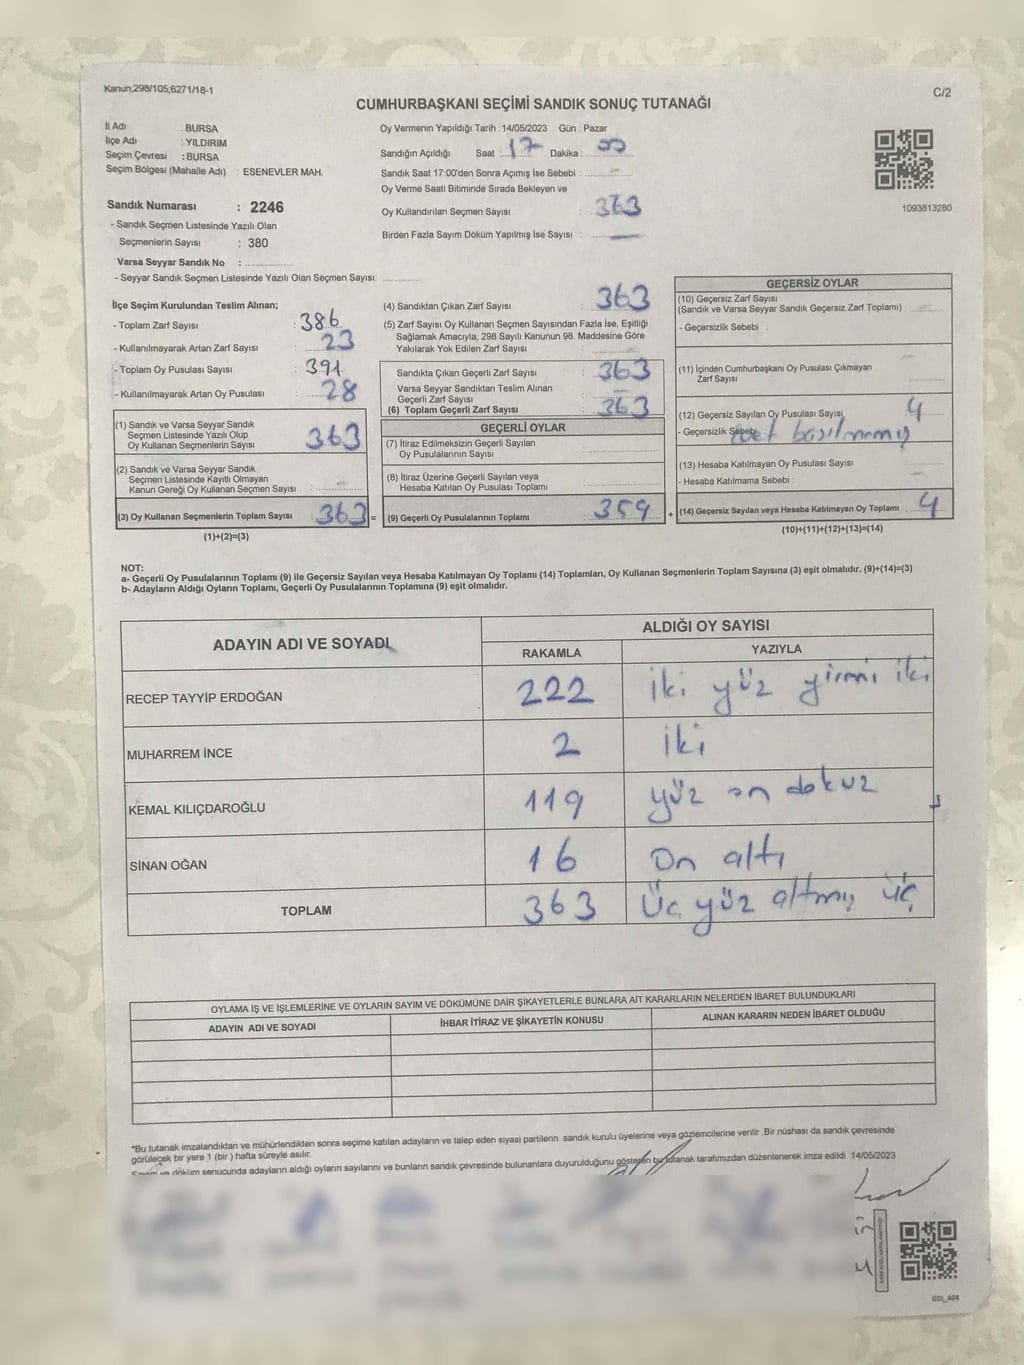 Kanun;298/105;6271/18-1
C/2
CUMHURBAŞKANI SEÇİMİ SANDIK SONUÇ TUTANAĞI
İl Adı : BURSA
İlçe Adı : YILDIRIM
Seçim Çevresi : BURSA
Seçim Bölgesi (Mahalle Adı) : ESENEVLER MAH.
Sandık Numarası : 2246
- Sandık Seçmen Listesinde Yazılı Olan
Seçmenlerin Sayısı : 380
Varsa Seyyar Sandık No :
- Seyyar Sandık Seçmen Listesinde Yazılı Olan Seçmen Sayısı:
Oy Vermenin Yapıldığı Tarih : 14/05/2023 Gün : Pazar
Sandığın Açıldığı Saat : 17 Dakika : 00
Sandık Saat 17:00'den Sonra Açımış İse Sebebi :
Oy Verme Saati Bitiminde Sırada Bekleyen ve
Oy Kullandırılan Seçmen Sayısı : 363
Birden Fazla Sayım Döküm Yapılmış İse Sayısı :
1093813280
İlçe Seçim Kurulundan Teslim Alınan;
- Toplam Zarf Sayısı : 386
- Kullanılmayarak Artan Zarf Sayısı : 23
- Toplam Oy Pusulası Sayısı : 391
- Kullanılmayarak Artan Oy Pusulası : 28
(1) Sandık ve Varsa Seyyar Sandık
Seçmen Listesinde Yazılı Olup
Oy Kullanan Seçmenlerin Sayısı : 363
(2) Sandık ve Varsa Seyyar Sandık
Seçmen Listesinde Kayıtlı Olmayan
Kanun Gereği Oy Kullanan Seçmen Sayısı :
(3) Oy Kullanan Seçmenlerin Toplam Sayısı : 363 =
(1)+(2)=(3)
(4) Sandıktan Çıkan Zarf Sayısı : 363
(5) Zarf Sayısı Oy Kullanan Seçmen Sayısından Fazla İse, Eşitliği
Sağlamak Amacıyla, 298 Sayılı Kanunun 98. Maddesine Göre
Yakılarak Yok Edilen Zarf Sayısı :
Sandıkta Çıkan Geçerli Zarf Sayısı : 363
Varsa Seyyar Sandıktan Teslim Alınan
Geçerli Zarf Sayısı :
(6) Toplam Geçerli Zarf Sayısı : 363
GEÇERLİ OYLAR
(7) İtiraz Edilmeksizin Geçerli Sayılan
Oy Pusulalarının Sayısı :
(8) İtiraz Üzerine Geçerli Sayılan veya
Hesaba Katılan Oy Pusulası Toplamı :
(9) Geçerli Oy Pusulalarının Toplamı : 359 +
GEÇERSİZ OYLAR
(10) Geçersiz Zarf Sayısı
(Sandık ve Varsa Seyyar Sandık Geçersiz Zarf Toplamı) :
- Geçersizlik Sebebi :
(11) İçinden Cumhurbaşkanı Oy Pusulası Çıkmayan
Zarf Sayısı :
(12) Geçersiz Sayılan Oy Pusulası Sayısı 4
- Geçersizlik Sebebi : evet basılmamış
(13) Hesaba Katılmayan Oy Pusulası Sayısı :
- Hesaba Katılmama Sebebi :
(14) Geçersiz Sayılan veya Hesaba Katılmayan Oy Toplamı : 4
(10)+(11)+(12)+(13)=(14)
NOT:
a- Geçerli Oy Pusulalarının Toplamı (9) ile Geçersiz Sayılan veya Hesaba Katılmayan Oy Toplamı (14) Toplamları, Oy Kullanan Seçmenlerin Toplam Sayısına (3) eşit olmalıdır. (9)+(14)=(3)
b- Adayların Aldığı Oyların Toplamı, Geçerli Oy Pusulalarının Toplamına (9) eşit olmalıdır.
ADAYIN ADI VE SOYADI ALDIĞI OY SAYISI
RAKAMLA YAZIYLA
RECEP TAYYİP ERDOĞAN 222 iki yüz yirmi iki
MUHARREM İNCE 2 iki
KEMAL KILIÇDAROĞLU 119 yüz on dokuz
SİNAN OĞAN 16 On altı
TOPLAM 363 Üç yüz altmış üç
OYLAMA İŞ VE İŞLEMLERİNE VE OYLARIN SAYIM VE DÖKÜMÜNE DAİR ŞİKAYETLERLE BUNLARA AİT KARARLARIN NELERDEN İBARET BULUNDUKLARI
ADAYIN ADI VE SOYADI İHBAR İTİRAZ VE ŞİKAYETİN KONUSU ALINAN KARARIN NEDEN İBARET OLDUĞU
*Bu tutanak imzalandıktan ve mühürlendikten sonra seçime katılan adayların ve talep eden siyasi partilerin sandık kurulu üyelerine veya gözlemcilerine verilir .Bir nüshası da sandık çevresinde
görülecek bir yere 1 (bir ) hafta süreyle asılır.
ve döküm sonucunda adayların aldığı oyların sayılarını ve bunların sandık çevresinde bulunanlara duyurulduğunu gösteren bu tutanak tarafımızdan düzenlenerek imza edildi 14/05/2023